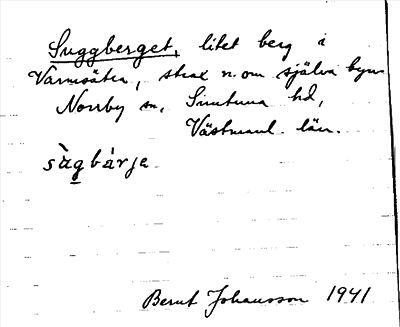 Suggberget, litet berg i
Varmsätra, strax n. om själva byn
Norrby sn, Simtuna hd,
Västmanl. län.
sàg bárje
Bernt Johansson 1941